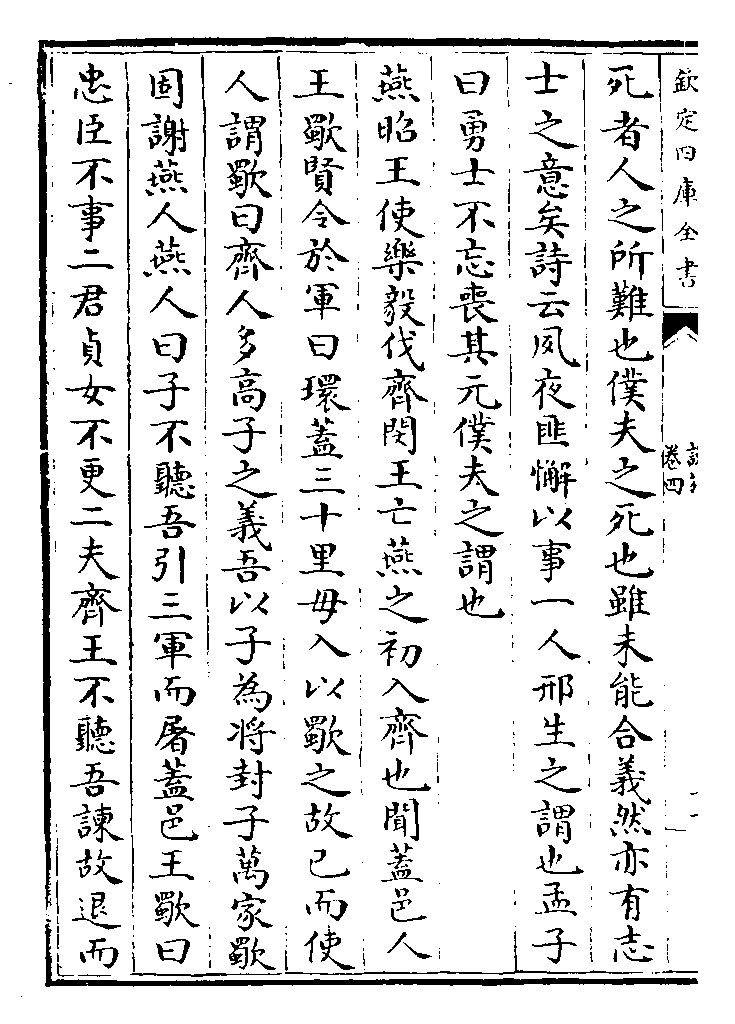 欽定四庫全書
卷四
死者人之所難也僕夫之死也雖未能合義然亦有志
士之意矣詩云夙夜匪懈以事一人邢生之謂也孟子
曰勇士不忘喪其元僕夫之謂也
燕昭王使樂毅伐齊閔王亡燕之初入齊也聞蓋邑人
王歜賢令於軍曰環蓋三十里毋入以歜之故已而使
人謂歜曰齊人多高子之義吾以子為將封子萬家歜
固謝燕人燕人曰子不聽吾引三軍而屠蓋邑王歜曰
忠臣不事二君貞女不更二夫齊王不聽吾諫故退而